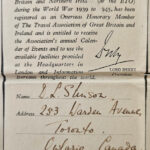 Britain and Northern Ireland (or the ETO)
during the World War 1939 to 1945, has been
registered as an Overseas Honorary Member
of The Travel Association of Great Britain and
Ireland and is entitled to receive
the Association's annual Calen-
dar of Events and to use the
available facilities provided
at the Headquarters in
London and Information
Services throughout the world.
Derby
LORD DERBY
Name
Stinson
Address
253 Warden Avenue,
Toronto
Ontario Canada